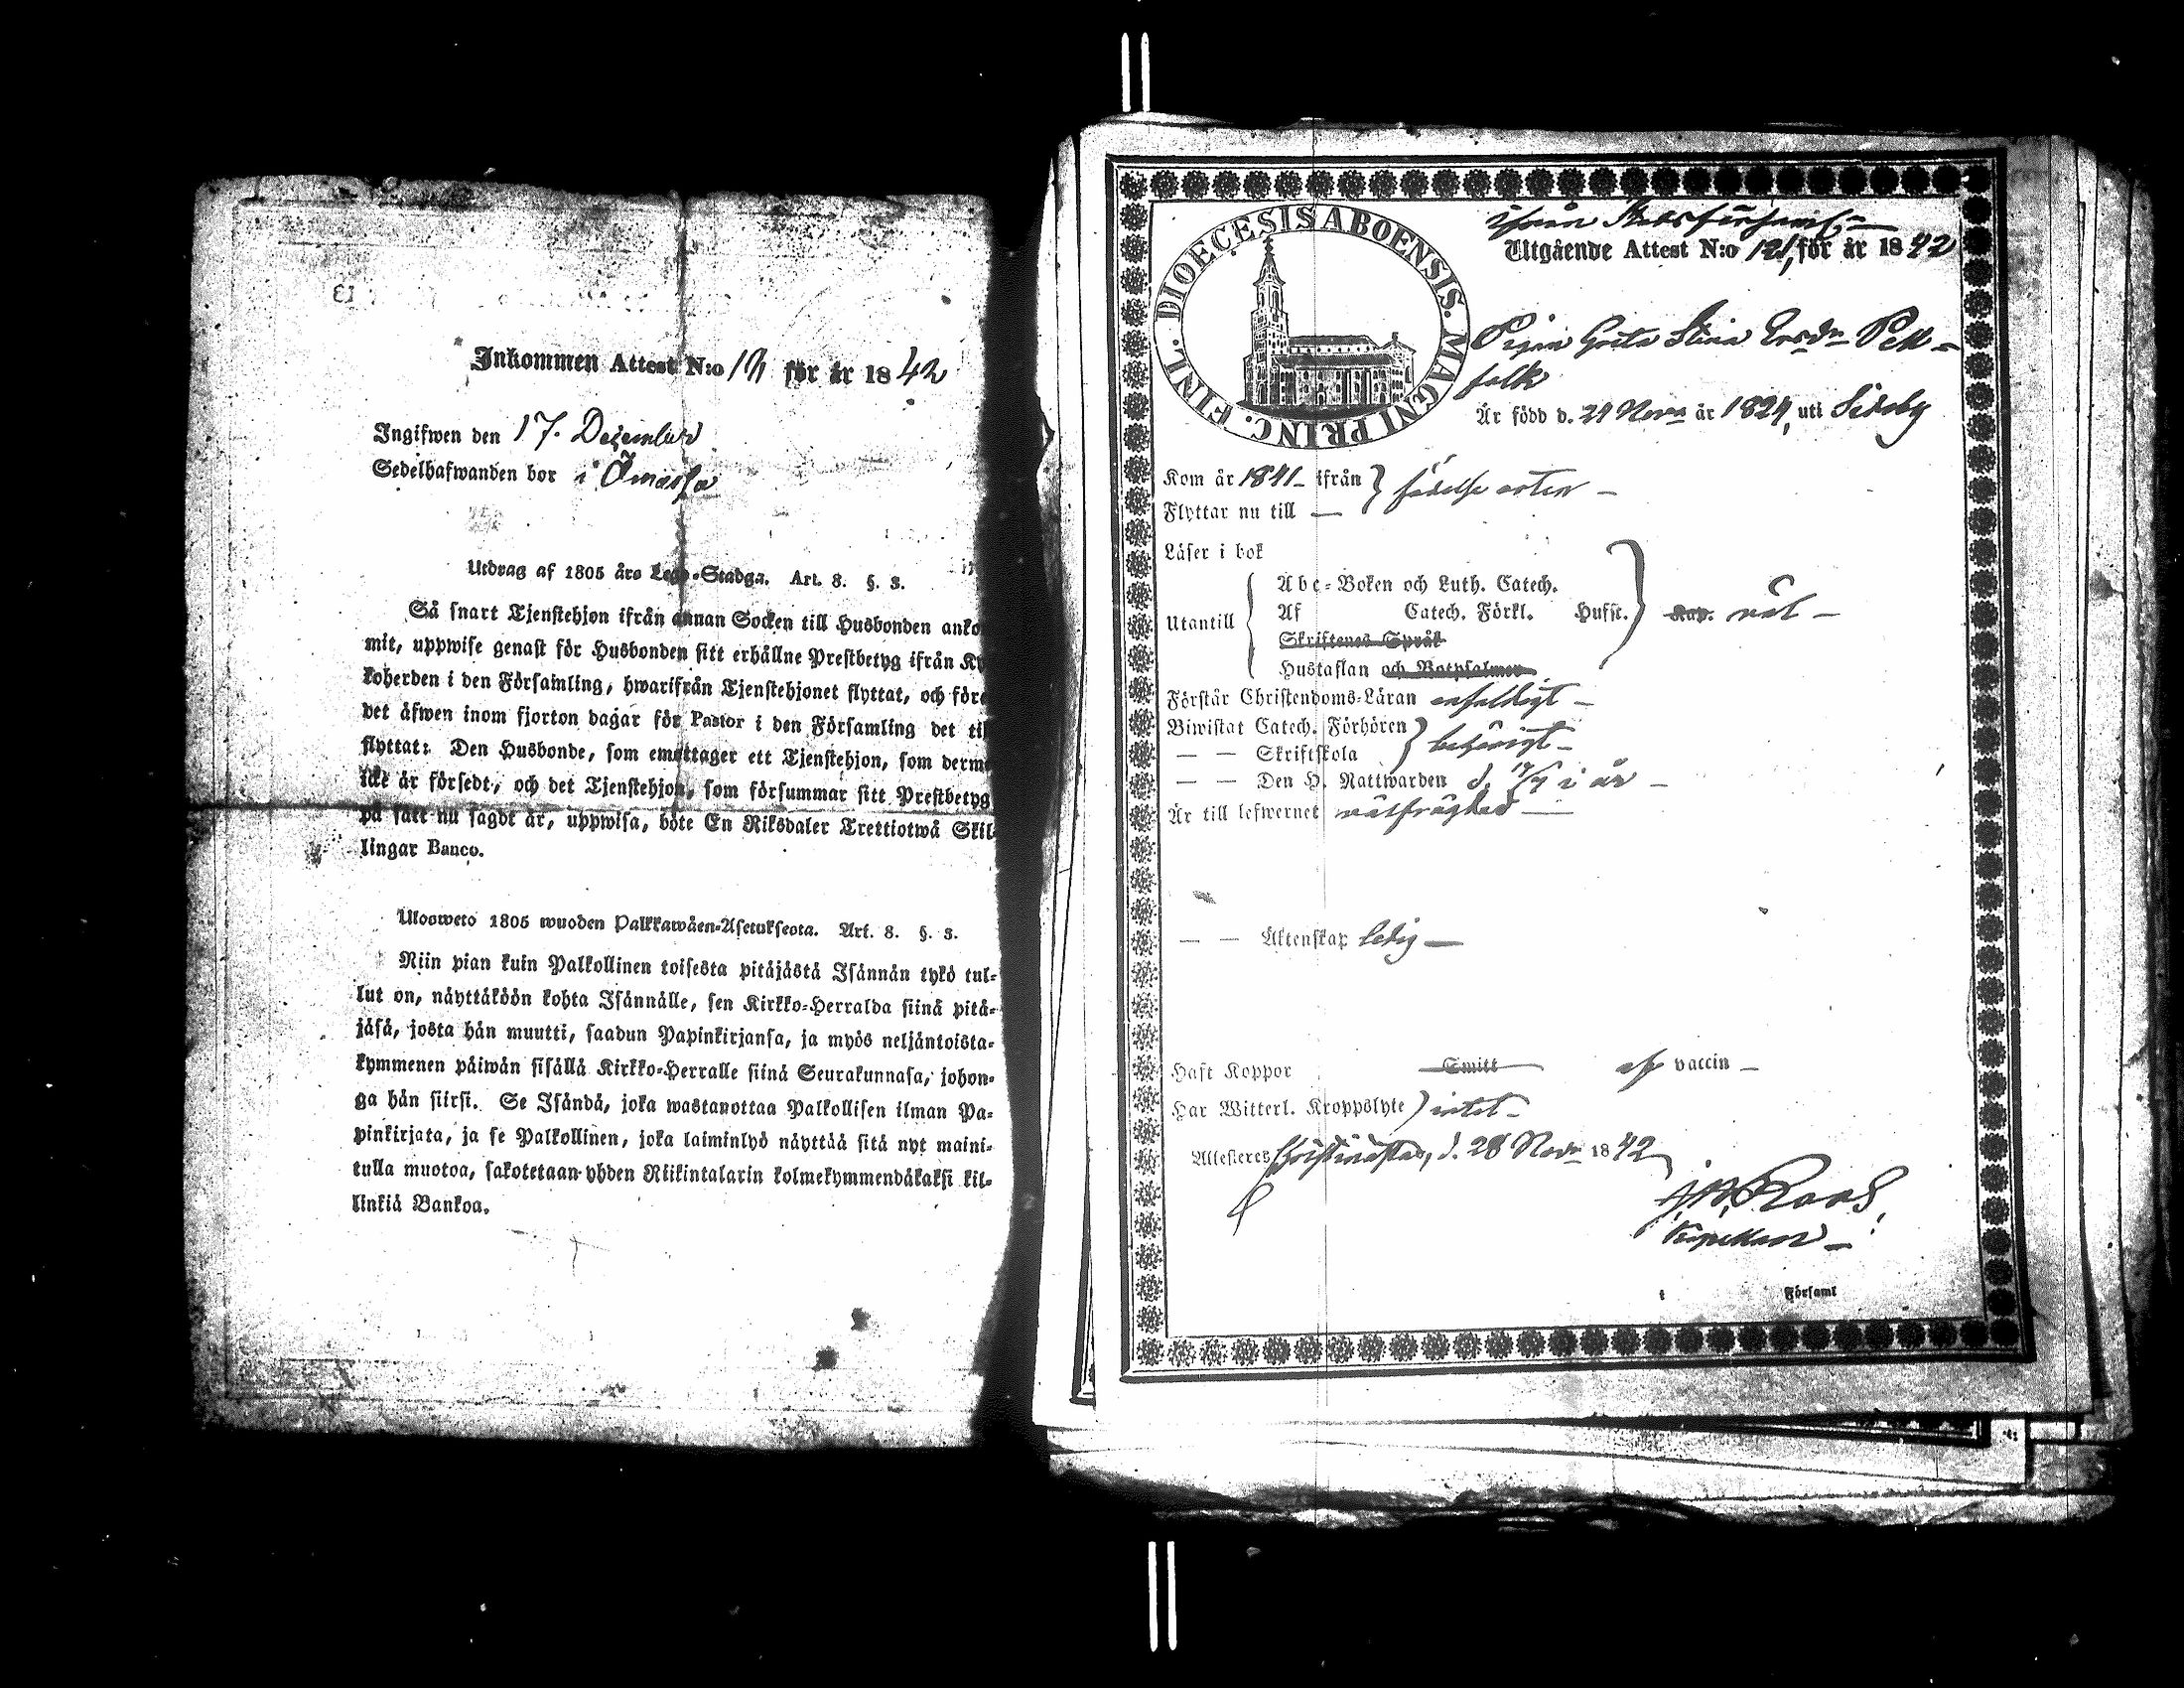 Inkommen Attest N:o 13 för år 1842
Ingifwen den 17. December
Sedelhafwanden bor i Ömossa
Utdrag af 1805 års Lego-Stadga. Art. 8. §. 3.
Så snart Tjenstehjon ifrån annan Socken till Husbonden anko
mit, uppwise genast för Husbonden sitt erhållne Prestbetyg ifrån Ky
koherden i den Församling, hwarifrån Tjenstehjonet flyttat, och före
det äfwen inom fjorton dagar för Pastor i den Församling det til
flyttat: Den Husbonde, som emottager ett Tjenstehjon, som derme
icke är försedt, och det Tjenstehjon, som försummar sitt Prestbetyg
på sätt nu sagdt är, uppwisa, böte En Riksdaler Trettiotwå Skil-
lingar Banco.
Ulosweto 1805 wuoden Palkkawäen-Asetuksesta. Art. 8. §. 3.
Niin pian kuin Palkollinen toisesta pitäjästä Isännän tykö tul-
lut on, näyttäköön kohta Isännälle, sen Kirkko-Herralda siinä pitä-
jäsä, josta hän muutti, saadun Papinkirjansa, ja myös neljäntoista-
kymmenen päiwän sisällä Kirkko-Herralle siinä Seurakunnasa, johon-
ga hän siirsi. Se Isändä, joka wastanottaa Palkollisen ilman Pa-
pinkirjata, ja se Palkollinen, joka laiminlyö näyttää sitä nyt maini-
tulla muotoa, sakotetaan yhden Riikintalarin kolmekymmendäkaksi kil-
linkiä Bankoa.
DIOECESIS ABOENSIS. MAGNI PRINC. FINL.
ifrån Stadsförsaml.
Utgående Attest N:o 121, för år 1842
Pigan Greta Stina Ersdr Pell-
falk
Är född d. 29 Novr år 1824, uti Sideby
Kom år 1841 ifrån } födelse orten
Flyttar nu till
Läser i bok
Abc-Boken och Luth. Catech.
Utantill Af Catech. Förkl. Hufst. Kap. väl
Skriftenes Språk
Hustaflan och Botpsalmen
Förstår Christendoms-Läran enfaldigt
Biwistat Catech. Förhören
— — Skriftskola } behörigt
— — Den H. Nattwarden d. 17/4 i år
Är till lefwernet välfrägdad
— — Äktenskap ledig
Haft Koppor Smitt af vaccin
Har Witterl. Kroppslyte } intet
Attesteres Christinestad, d. 28 Novr 1842
J. W. Roos
Kapellan
i Församl